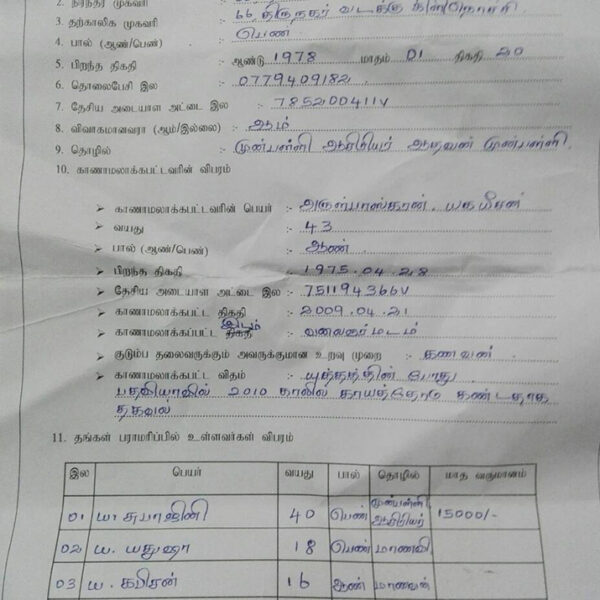 2. நிரந்தர முகவரி
3. தற்காலிக முகவரி :- 66, திருநகர் வடக்கு கிளிநொச்சி
4. பால் (ஆண்/பெண்) :- பெண்
5. பிறந்த திகதி :- ஆண்டு 1978 மாதம் 01 திகதி 20
6. தொலைபேசி இல :- 0779409182
7. தேசிய அடையாள அட்டை இல :- 785200411V
8. விவாகமானவரா (ஆம்/இல்லை) :- ஆம்
9. தொழில் :- முன்பள்ளி ஆசிரியர் ஆதவன் முன்பள்ளி.
10. காணாமலாக்கபட்டவரின் விபரம்
➢ காணாமலாக்கபட்டவரின் பெயர் :- அருள்பாஸ்கரன்.
➢ வயது :- 43
➢ பால் (ஆண்/பெண்) :- ஆண்
➢ பிறந்த திகதி :- 1975.04.28
➢ தேசிய அடையாள அட்டை இல :- 751194366V
➢ காணாமலாக்கபட்ட திகதி :- 2009.04.21
➢ காணாமலாக்கப்பட்ட இடம் :- வலைஞர்மடம்
➢ குடும்ப தலைவருக்கும் அவருக்குமான உறவு முறை :- கணவன்
➢ காணாமலாக்கபட்ட விதம் :- யுத்தத்தின் போது
2010 காலில் காயத்தோடு கண்டதாக
தகவல்
11. தங்கள் பராமரிப்பில் உள்ளவர்கள் விபரம்
இல பெயர் வயது பால் தொழில் மாத வருமானம்
01 ய. சுபாஜினி 40 பெண் முன்பள்ளி ஆசிரியர் 15000/-
02 ய. யதுஷா 18 பெண் மாணவி
03 ய. கபிசன் 16 ஆண் மாணவன்